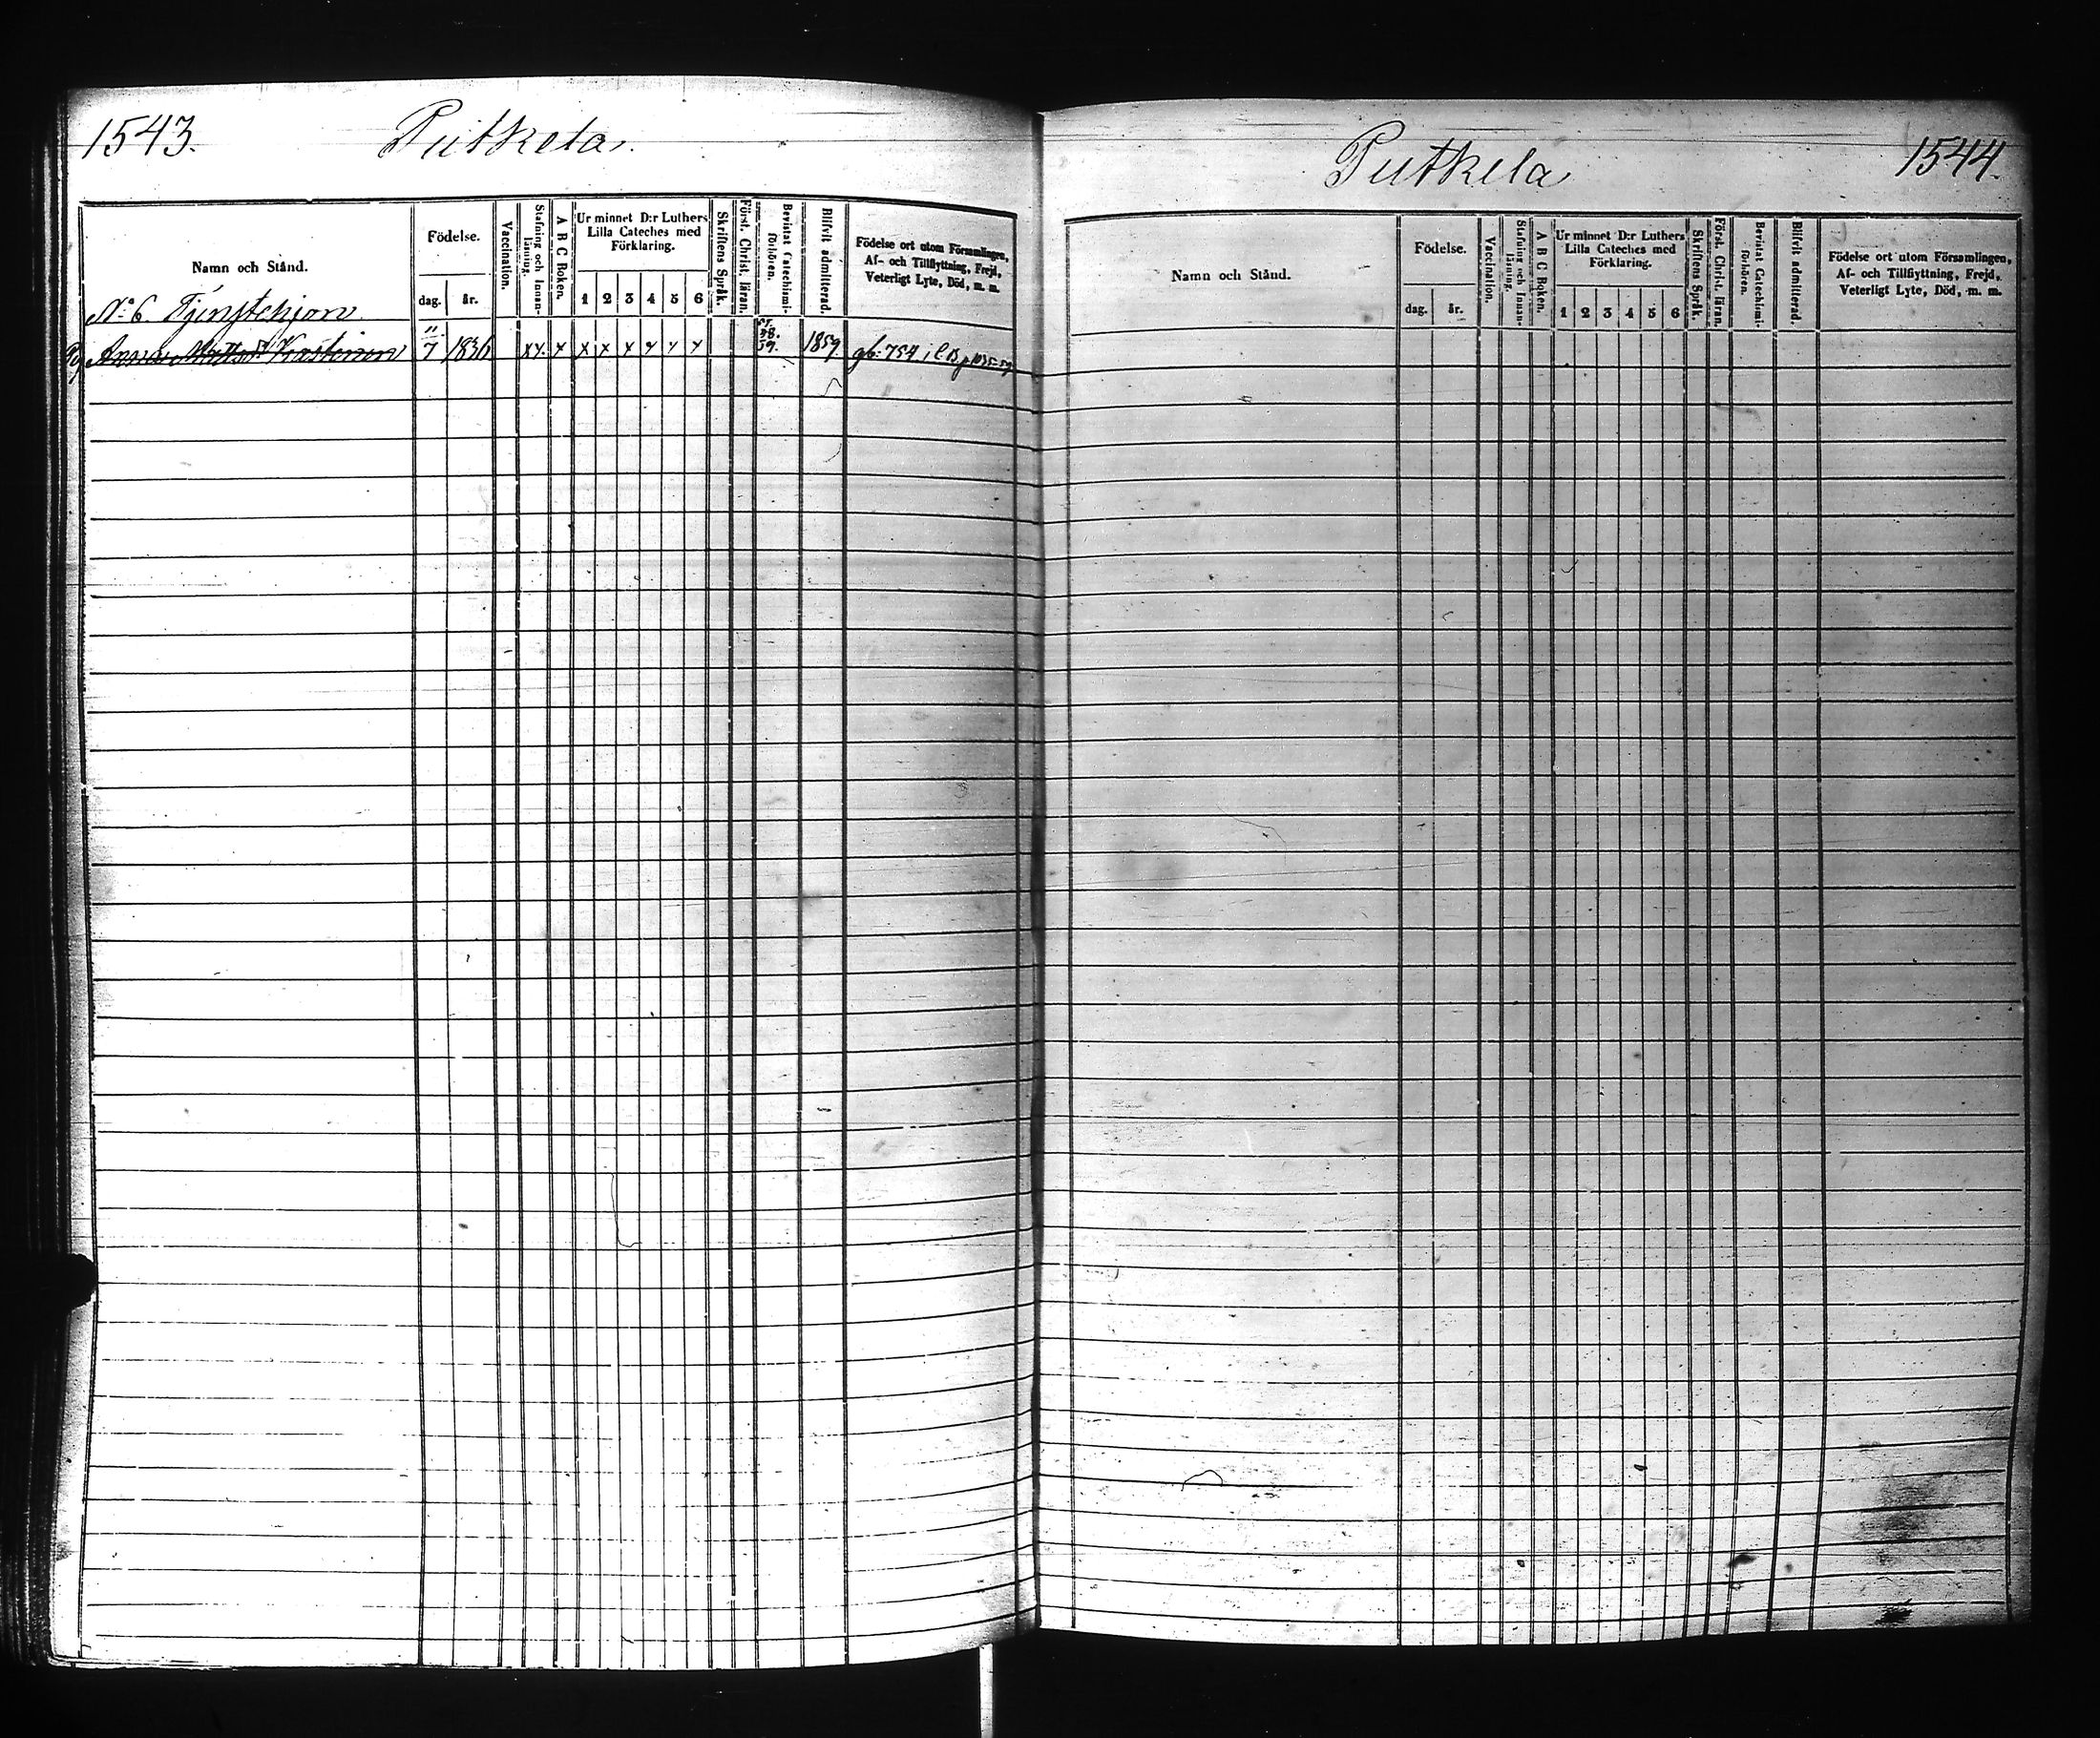 1543.
Putkela.
Namn och Stånd.
Födelse.
dag.
år.
Vaccination.
Stafning och Innan-
läsning.
A B C Boken.
Ur minnet D:r Luthers
Lilla Cateches med
Förklaring.
1 2 3 4 5 6
Skriftens Språk.
Först. Christ. läran.
Bevistat Catechismi-
förhören.
Blifvit admitterad.
Födelse ort utom Församlingen,
Af- och Tillflyttning, Frejd,
Veterligt Lyte, Död, m. m.
No 6. Tjenstehjon
11/7 1836 x x. x x x x x x x 59. 1859
1544.
Putkela
Namn och Stånd.
Födelse.
dag.
år.
Vaccination.
Stafning och Innan-
läsning.
A B C Boken.
Ur minnet D:r Luthers
Lilla Cateches med
Förklaring.
1 2 3 4 5 6
Skriftens Språk.
Först. Christ. läran.
Bevistat Catechismi-
förhören.
Blifvit admitterad.
Födelse ort utom Församlingen,
Af- och Tillflyttning, Frejd,
Veterligt Lyte, Död, m. m.